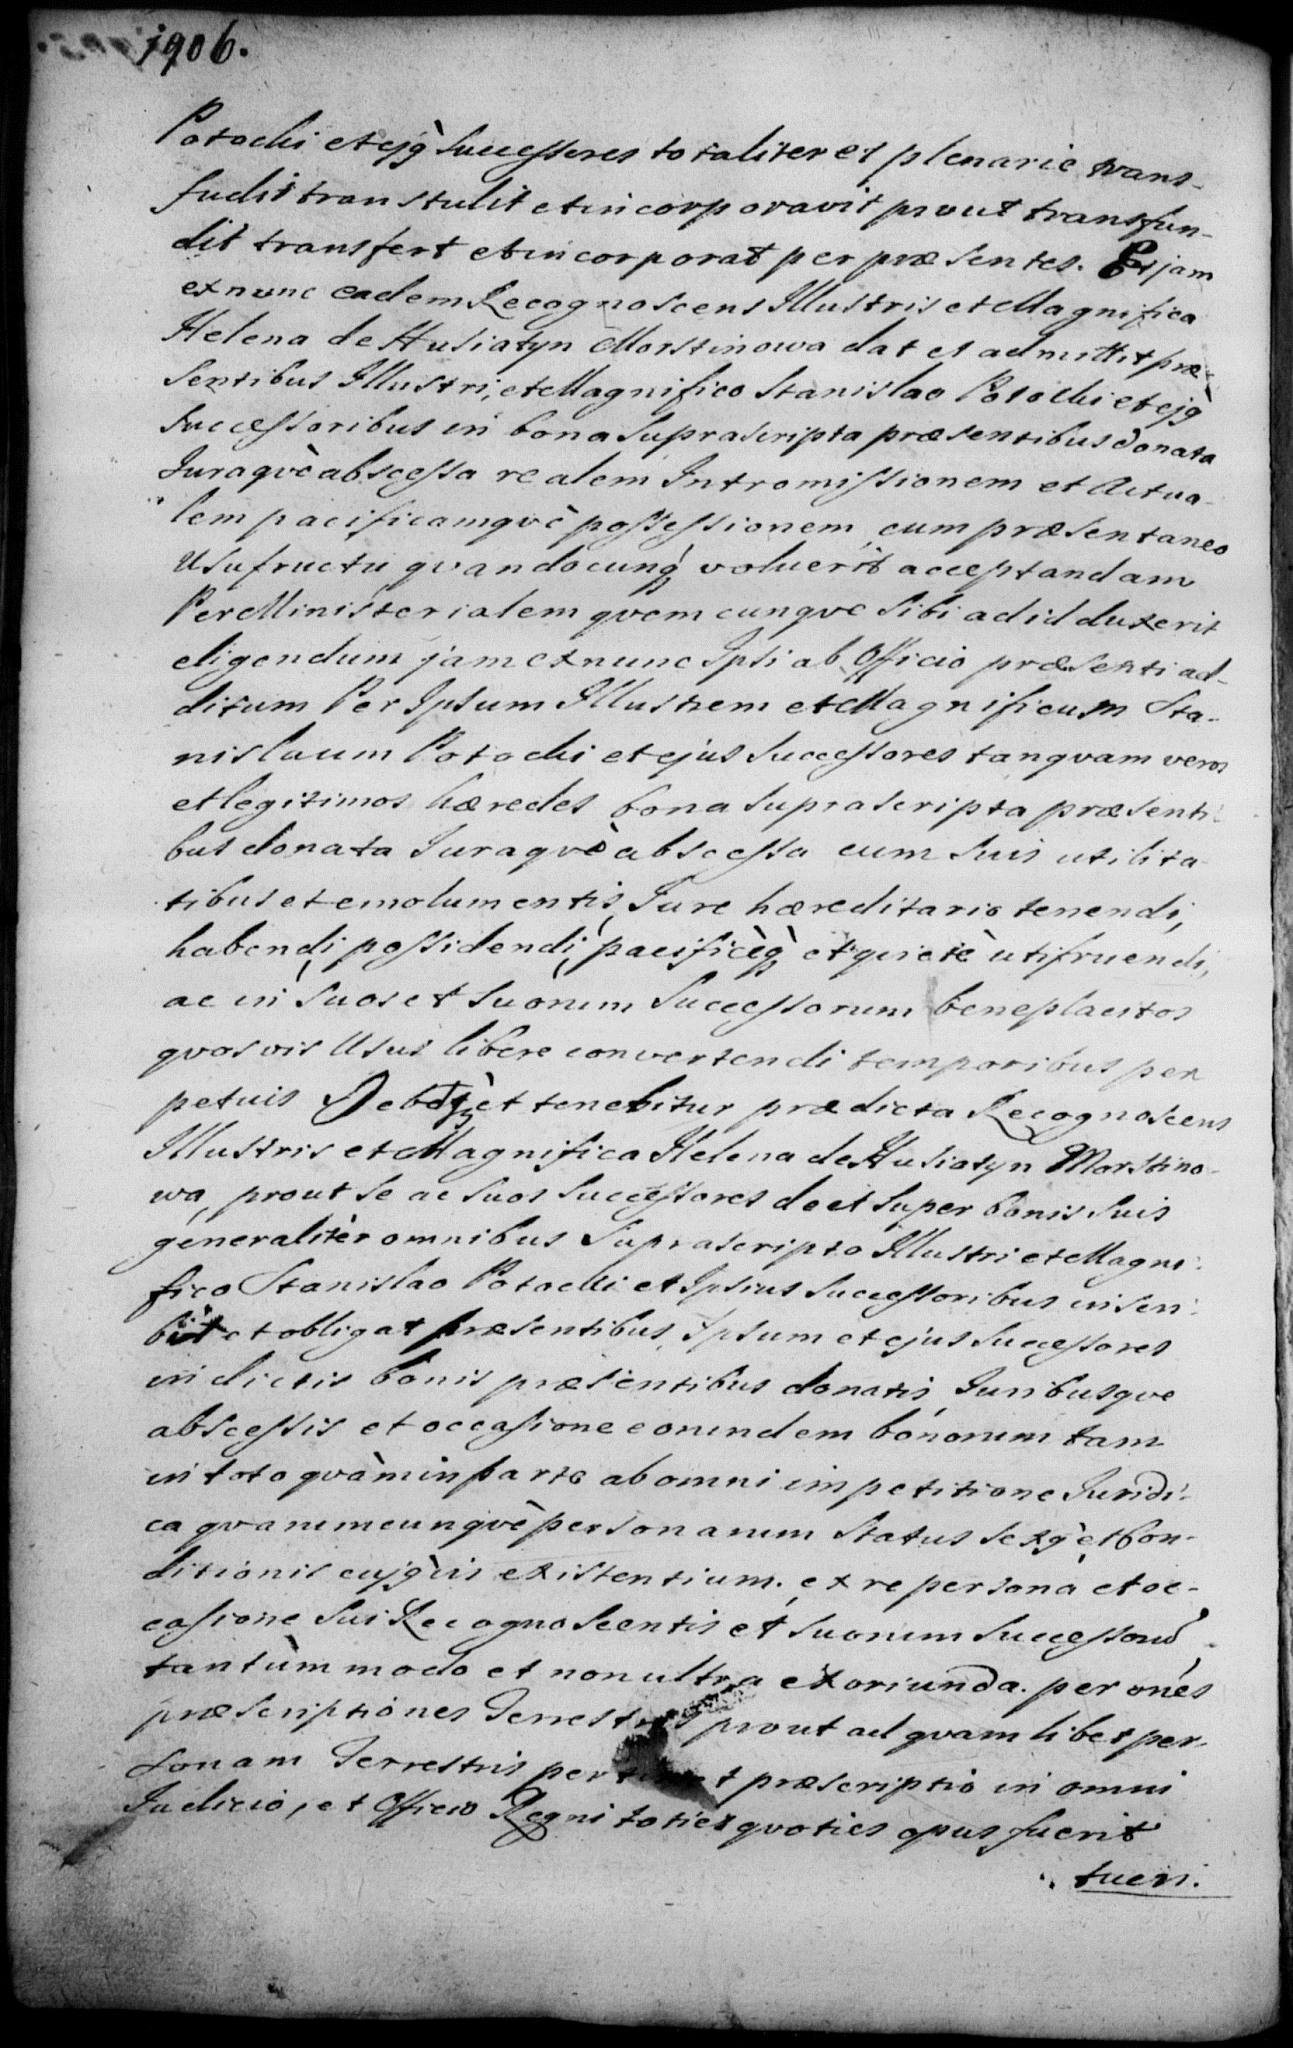 1906.
Potocki et ejq̀ Successores totaliter et plenarie trans-
fudit transtulit et incorporavit prout transfun-
dit transfert et incorporat per præsentes. Et jam
ex nunc eadem Recognoscens Illustris et Magnifica
Helena de Husiatyn Morstinowa dat et admittit præ
sentibus Illustri, et Magnifico Stanislao Potocki et ejq̀
Successoribus in bona suprascripta præsentibus donata
Juraqvè abscessa realem Intromissionem et Actua-
lem pacificamqvè possessionem cum præsentaneo
Usufructu qvandocunq̀ voluerit acceptandam
Per Ministerialem qvemcunqve sibi ad id duxerit
eligendum jam ex nunc Ipsi ab Officio præsenti ad-
ditum Per Ipsum Illustrem et Magnificum Sta-
nislaum Potocki et ejus Successores tanqvam veros
et legitimos hæredes bona suprascripta præsenti-
bus donata Juraqvè abscessa cum suis utilita
tibus et emolumentis, Jure hæreditario tenendi,
habendi, possidendi, pacificèq̀ et qvietè utifruendi,
ac in suos et suorum Successorum beneplacitos
qvosvis Usus libere convertendi temporibus per
petuis Debetq̀ et tenebitur prædicta Recognoscens
Illustris et Magnifica Helena de Husiatyn Morstino-
wa, prout se ac suos successores de et super bonis suis
generalitèr omnibus Suprascripto Illustri et Magni-
fico Stanislao Potocki et Ipsius Successoribus inscri-
bit et obligat præsentibus, Ipsum et ejus Successores
in dictis bonis præsentibus donatis, Juribusqve
abscessis et occasione eorundem bonorum tam
in toto qvàm in parte ab omni impetitione Juridi-
ca qvarumcunqvè personarum Status sexq̀ et Con-
ditionis cujq̀vis existentium, ex re persona et oc-
casione sui Recognoscentis et suorum Successorū
tantùmmodo et non ultra exoriunda. per onés
præscriptiones Terrestres prout ad qvamlibet per-
sonam Terrestris pertinet præscriptio in omni
Judicio, et Officio Regni toties qvoties opus fuerit
tueri.